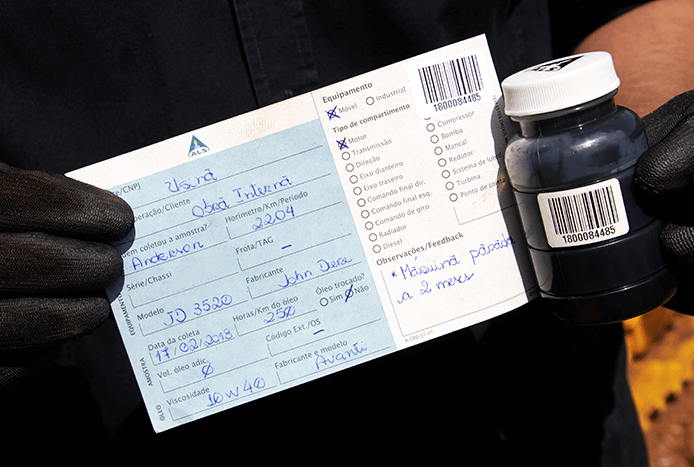 ALS
Usina
Operação/Cliente
Obra Interna
Quem coletou a amostra?
Horímetro/Km/Período
Anderson
2204
Série/Chassi
Frota/TAG
–
Modelo
Fabricante
JD 3520
John Dere
Data da coleta
Horas/Km do óleo
Óleo trocado?
17/02/2018
250
Sim Não
Vol. óleo adic.
Código Ext./OS
Ø
–
Viscosidade
Fabricante e modelo
10W40
Avanti
EQUIPAMENTO
AMOSTRA
ÓLEO
Equipamento
Móvel Industrial
Tipo de compartimento
Motor
Transmissão
Direção
Eixo dianteiro
Eixo traseiro
Comando final dir.
Comando final esq.
Comando de giro
Radiador
Diesel
Compressor
Bomba
Mancal
Redutor
Sistema de
Turbina
Ponto de
1800084485
Observações/Feedback
* Máquina parada
a 2 meses
ALS
1800084485